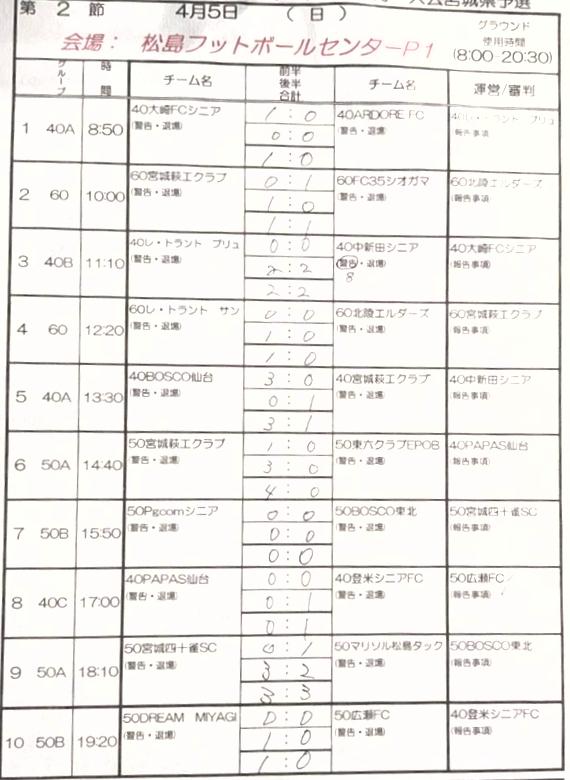 大会宮城県予選
第 2 節 4月5日 (日)
グラウンド
使用時間
(8:00-20:30)
会場: 松島フットボールセンターP1
グループ 時間 チーム名 前半 後半 合計 チーム名 運営/審判
1 40A 8:50 40大崎FCシニア 40ARDORE FC 40レ・トラント ブリュ
(警告・退場) 1:0 (警告・退場) 報告事項
0:0
1:0
2 60 10:00 60宮城萩エクラブ 60FC35シオガマ 60北陵エルダーズ
(警告・退場) 0:1 (警告・退場) (報告事項)
1:0
1:1
3 40B 11:10 40レ・トラント ブリュ 40中新田シニア 40大崎FCシニア
(警告・退場) 0:0 (警告・退場) (報告事項)
2:2 8
2:2
4 60 12:20 60レ・トラント サン 60北陵エルダーズ 60宮城萩エクラブ
(警告・退場) 0:0 (警告・退場) (報告事項)
1:0
1:0
5 40A 13:30 40BOSCO仙台 40宮城萩エクラブ 40中新田シニア
(警告・退場) 3:0 (警告・退場) (報告事項)
0:1
3:1
6 50A 14:40 50宮城萩エクラブ 50東六クラブEPOB 40PAPAS仙台
(警告・退場) 1:0 (警告・退場) (報告事項)
3:0
4:0
7 50B 15:50 50Pgcomシニア 50BOSCO東北 50宮城四十雀SC
(警告・退場) 0:0 (警告・退場) (報告事項)
0:0
0:0
8 40C 17:00 40PAPAS仙台 40登米シニアFC 50広瀬FC
(警告・退場) 0:0 (警告・退場) (報告事項)
0:1
0:1
9 50A 18:10 50宮城四十雀SC 50マリソル松島タック 50BOSCO東北
(警告・退場) 0:1 (警告・退場) (報告事項)
3:2
3:3
10 50B 19:20 50DREAM MIYAGI 50広瀬FC 40登米シニアFC
(警告・退場) 0:0 (警告・退場) (報告事項)
1:0
1:0